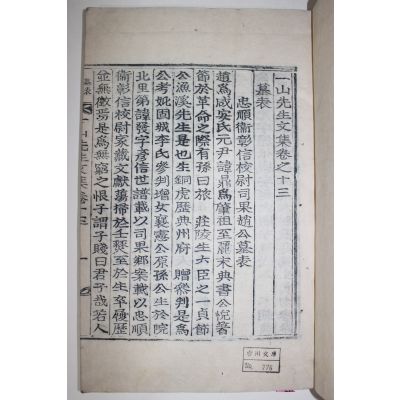 一山先生文集卷之十三
墓表
忠順衛彰信校尉司果趙公墓表
趙爲咸安氏元尹諱鼎爲肇祖至麗宋典書公悅著
節於革命之際有孫曰旅 莊陵生六臣之一貞節
公漁溪先生是也生銅虎歷典州府 贈參判是爲
公考妣固城李氏參判增女襄憲公原孫公生於院
北里第諱發字彥信世譜載以司果鄉案載以忠順
衛彰信校尉家藏文獻蕩掃於壬燹至於生卒履歷
並無徵焉是爲無窮之恨子謂子賤曰君子哉若人
墓表
一山先生文集卷十三
一
市川文庫
No. 276